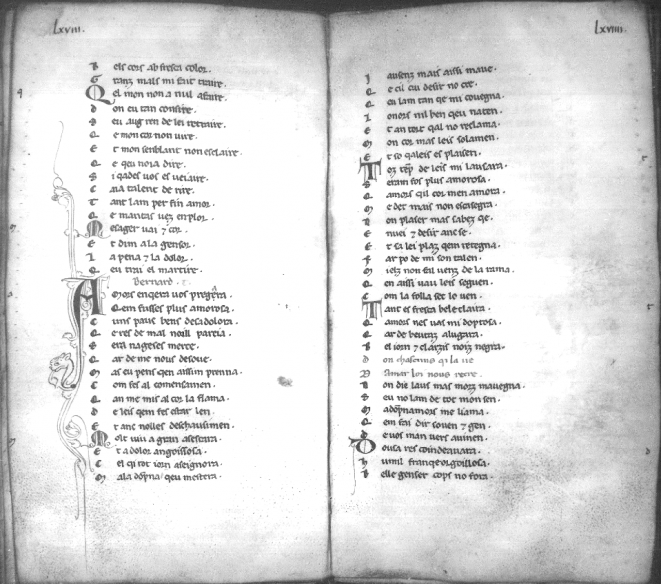 lxviii.
B els cors ab fresca color.
G ranz mals mi fait traire.
Q el mon non a nul afaire.
D on eu tan consire.
S eu aug ren de lei retraire.
Q e mon cor non vire.
E t mon senblant non esclaire.
Q e qeu noia dire.
S i qades vos er veiaire.
C aia talent de rire.
T ant lam per fin amor.
Q e mantas vez en plor.
M esager vai 7 cor.
E t dim a la gensor.
L a pena 7 la dolor.
Q eu trai el martire.
Bernard
A Mors enqera vos pregera.
Q em fusses plus amorosa.
C uns paus bens desadolora.
Q e res de mal no ill pareia
S era nages merce.
Q ar de me nous desove.
M as eu pens qen aissim prenna.
C om fes al comensamen.
Q an me mis al cor la flama.
D e leis qem fes estar len
E t anc nolles deschausimen.
M olt viu a gran
E t a dolor angoissosa.
C el qi tot iorn aseignora.
M ala dopna qeu
lxviiii.
I ausenz mais aissi mave.
Q e cil cui desir no cre.
Q eu lam tan qe mi covegna.
I onors mi ben qeu naten.
E t an tort qal no reclama.
M on cor mas leis solamen.
E t so qaleis es plaisen.
T oz temps de leis mi lausara.
S eram fos plus amorosa.
Q amors qil cor men amora.
M e det mais non escasegra.
N on plaser mas sabez qe.
E nuei 7 desir anc se.
E t sa lei plaz qem retegna.
F ar po de mi son talen.
M ielz non fai venz de la rama.
Q en aissi vau leis seguen.
C om la folla sec lo ven.
T ant es fresca bele claira.
Q amors nes vas mi doptosa.
Q ar de beutaz alugara.
B el iorn 7 clarzis noiz negra.
D on chascuns qi la ve
N on dic laus mas morz mavegna.
S eu no lam de tot mon sen.
M a dopnamors me liama.
Q em fai dir soven 7 gen.
D e vos man vers avinen.
D ousa res coindeavara.
H umil franqeorgoillosa.
B elle genser cops no fora.